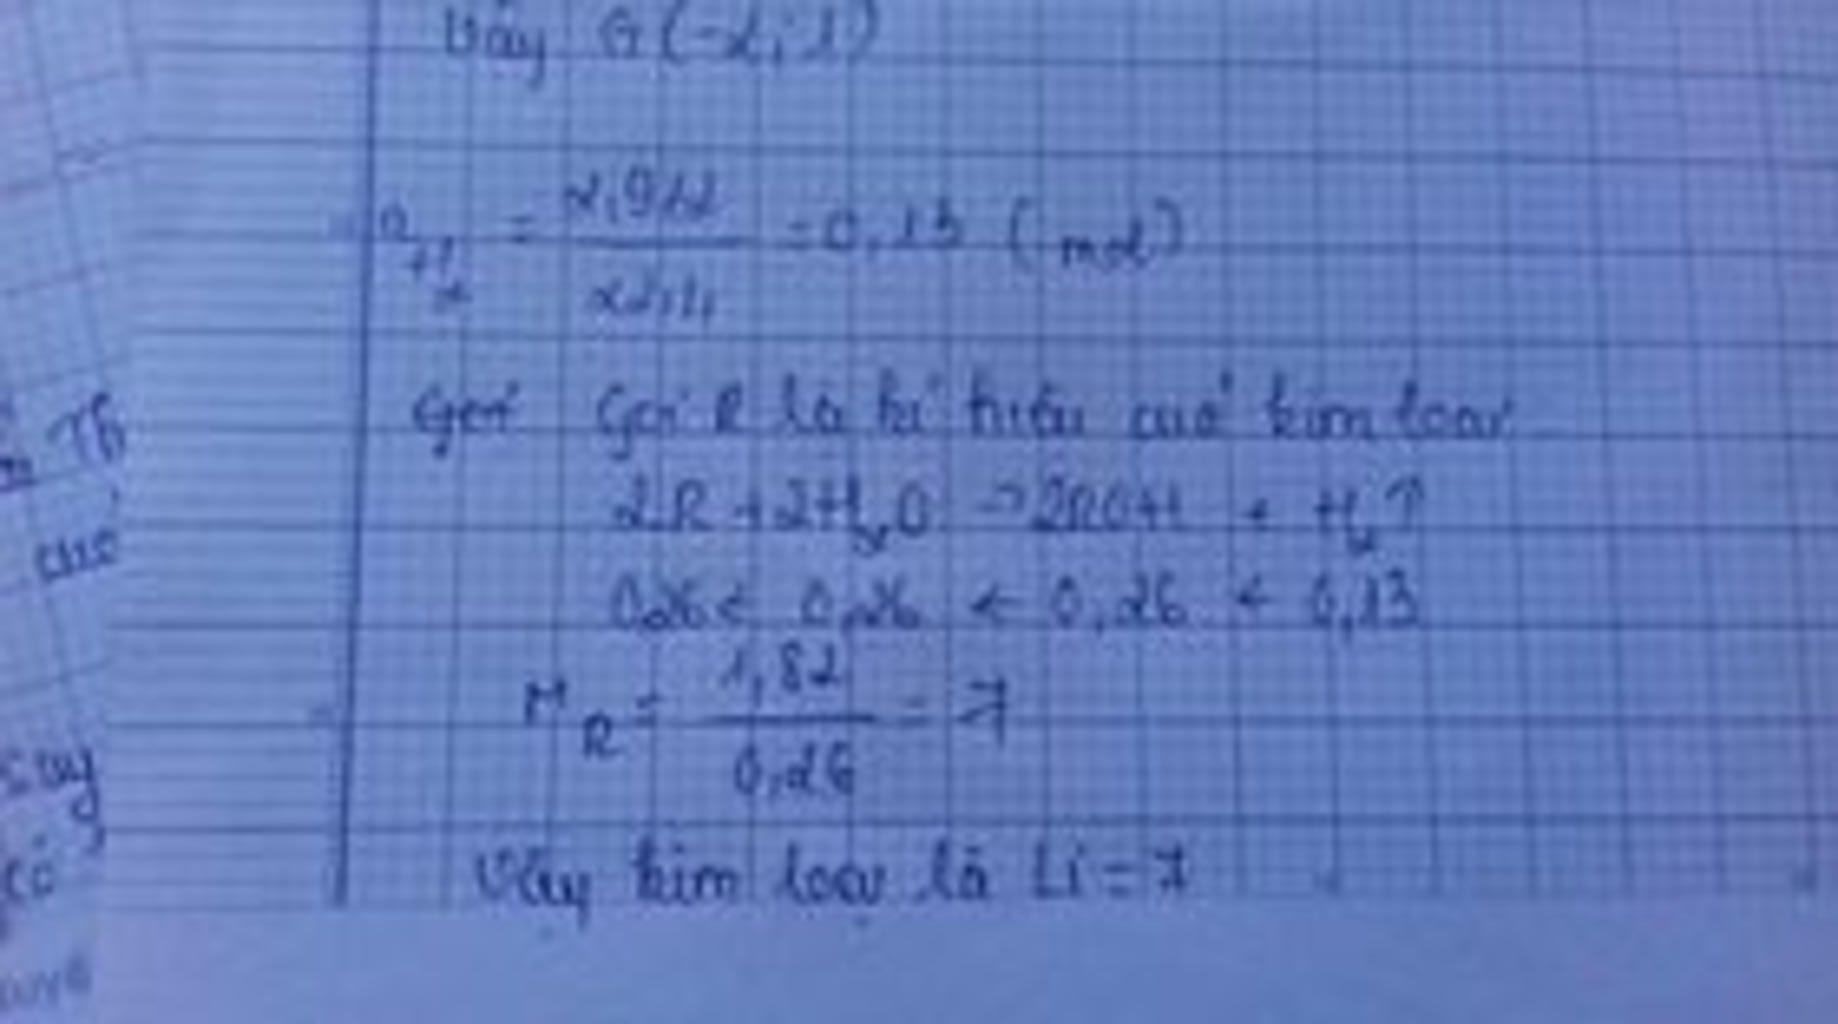 Vậy G(-2; 1)
n H2 = 2,912 / 22,4 = 0,13 (mol)
Gọi Gọi R là kí hiệu của kim loại
2R + 2H2O -> 2ROH + H2↑
0,26 ← 0,26 ← 0,26 ← 0,13
M R = 1,82 / 0,26 = 7
Vậy kim loại là Li = 7
Th
cho
say
có